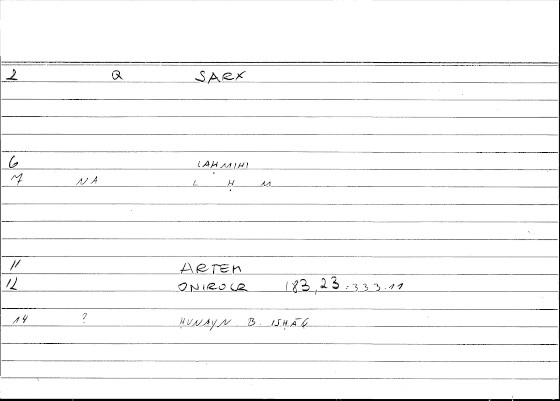 2 Q SARX
6 LAḤMIHI
7 NA L Ḥ M
11 ARTEM
12 ONIROCR 183,23 : 333.11
14 ? ḤUNAYN B. ISḤĀQ